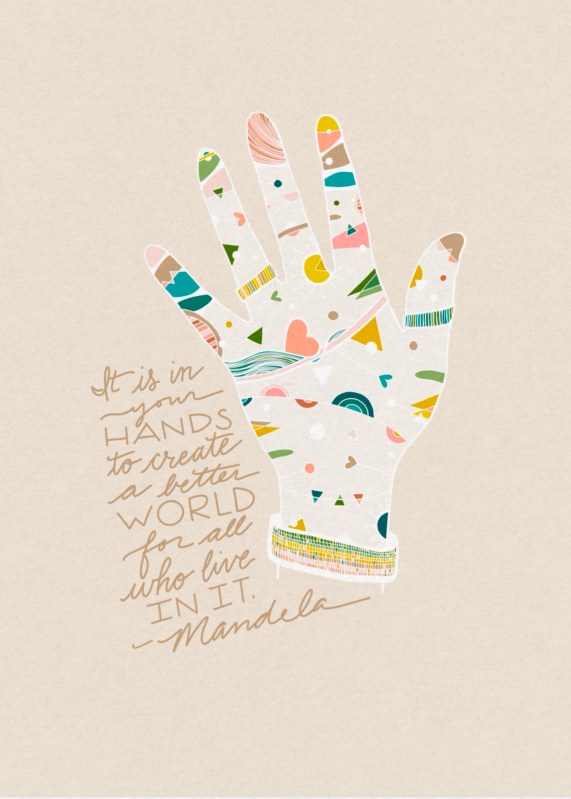 It is in
your
HANDS
to create
a better
WORLD
for all
who live
IN IT.
-Mandela